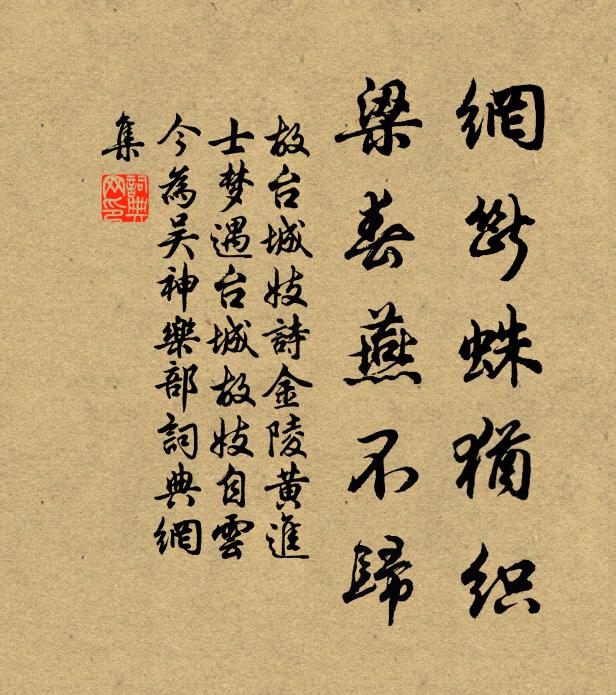 網斷蛛猶织
梁春燕不歸
故台城妓詩金陵黄進
士梦遇台城故妓自雲
今為吴神樂部詞典網
集
詞典
网印